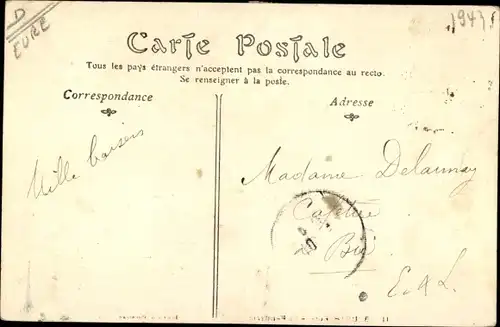 D
EURE
1943
Carte Postale
Tous les pays étrangers n'acceptent pas la correspondance au recto.
Se renseigner à la poste.
Correspondance
Adresse
Mille baisers
Madame Delaunay
à Bû
E. & L.